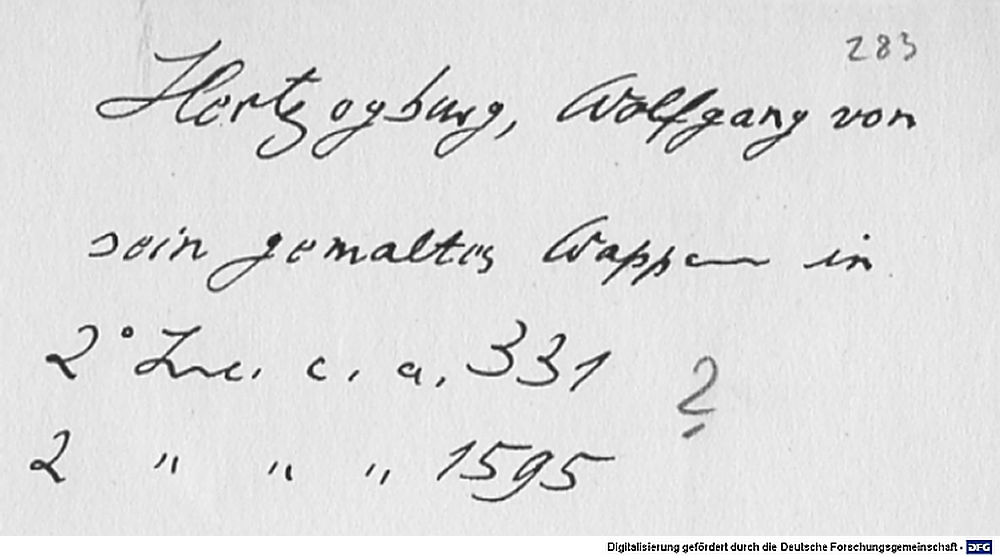 283
Hertzogburg, Wolfgang von
sein gemaltes Wappen in
2° Inc. c. a. 331
2 " " " 1595
2
Digitalisierung gefördert durch die Deutsche Forschungsgemeinschaft - DFG